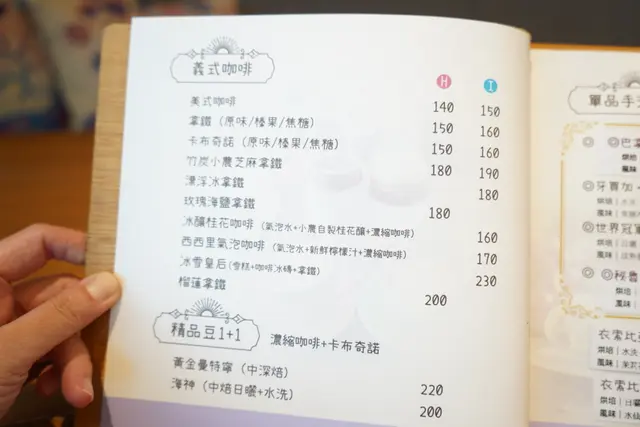 義式咖啡
H I
美式咖啡 140 150
拿鐵(原味/榛果/焦糖) 150 160
卡布奇諾(原味/榛果/焦糖) 150 160
竹炭小農芝麻拿鐵 180 190
漂浮冰拿鐵 180
玫瑰海鹽拿鐵 180
冰釀桂花咖啡(氣泡水+小農自製桂花釀+濃縮咖啡) 160
西西里氣泡咖啡(氣泡水+新鮮檸檬汁+濃縮咖啡) 170
冰雪皇后(雪糕+咖啡冰磚+拿鐵) 230
榴蓮拿鐵 200
精品豆1+1 濃縮咖啡+卡布奇諾
黃金曼特寧(中深焙) 220
海神(中焙日曬+水洗) 200
單品手
烘焙
風味
牙買加
烘焙|水
風味
世界冠軍
烘焙|日
風味
祕
烘焙
風味
衣索比
烘焙|水洗
風味|茉
衣索比
烘焙|日
風味|水